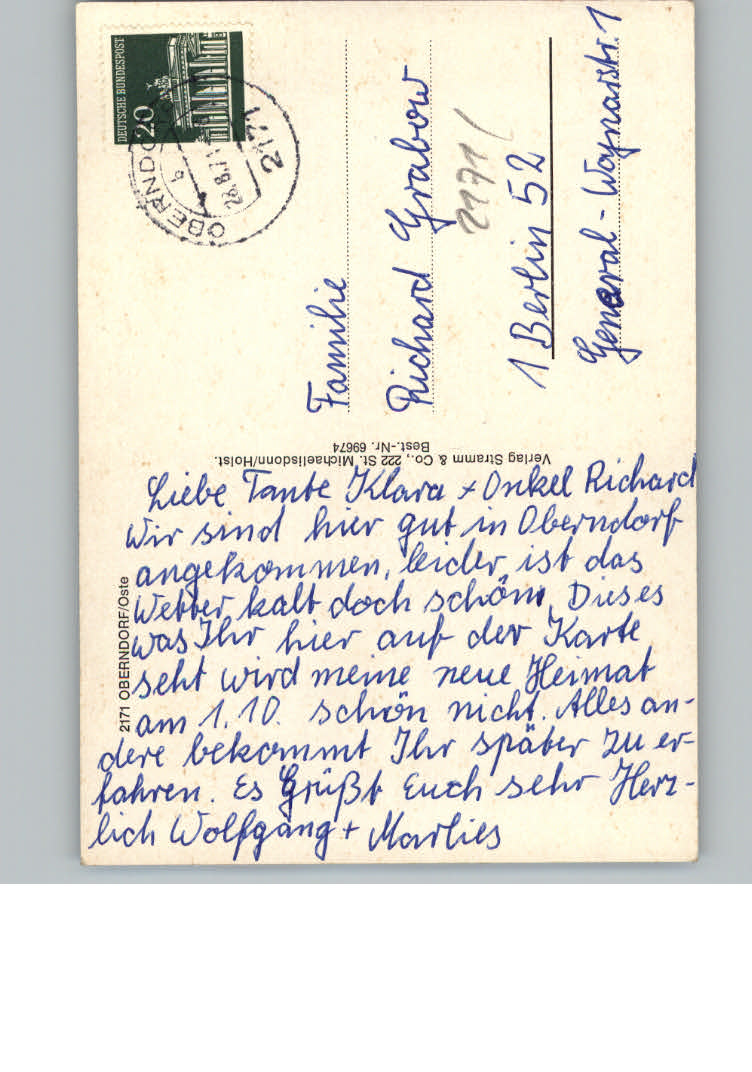 DEUTSCHE BUNDESPOST
20
OBERNDO
b
28.8.71
2171
Familie
Richard Grabow
2171
1 Berlin 52
General-Woynastr. 1
Verlag Stramm & Co., 222 St. Michaelisdonn/Holst.
Best.-Nr. 69674
2171 OBERNDORF/Oste
Liebe Tante Klara + Onkel Richard
Wir sind hier gut in Oberndorf
angekommen, leider ist das
Wetter kalt doch schön, Dieses
was Ihr hier auf der Karte
seht wird meine neue Heimat
am 1.10. schön nicht. Alles an-
dere bekommt Ihr später zu er-
fahren. Es Grüßt Euch sehr Herz-
lich Wolfgang + Marlies